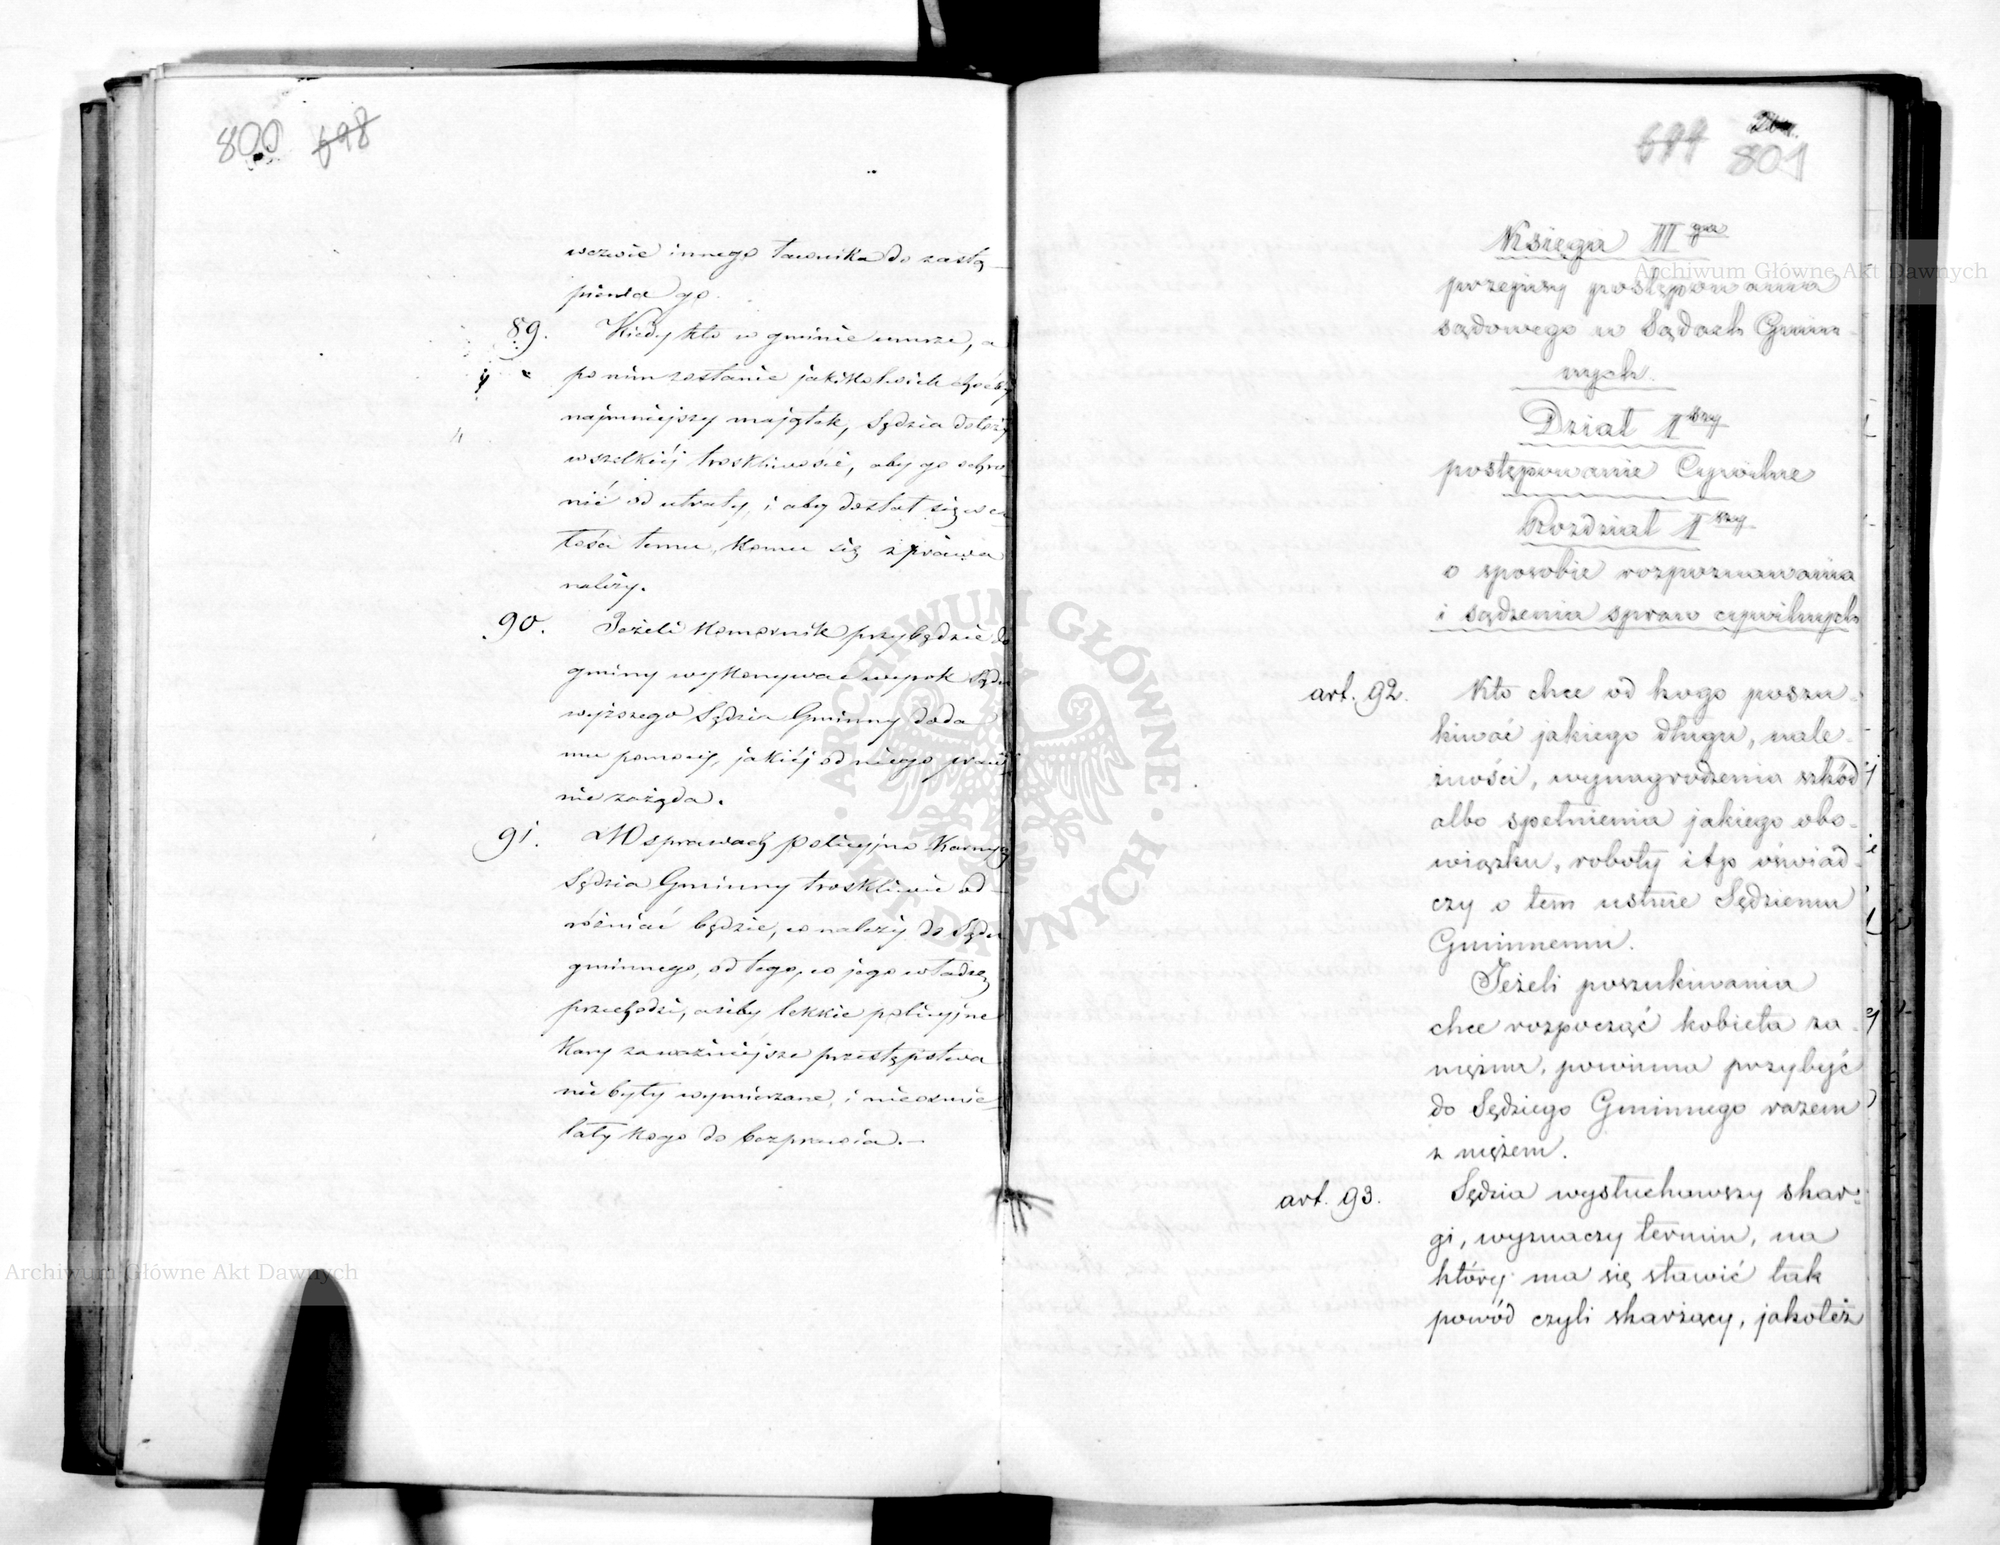 800 698
wezwie innego ławnika do zastą-
pienia go.
89. Kiedy kto w gminie umrze, a
po nim zostanie jakikolwiek choćby
najmniejszy majątek, Sędzia dołoży
wszelkiéj troskliwości, aby go ochro-
nić od utraty, i aby dostał się w ca
łości temu, komu się z prawa
należy.
90. Jeżeli Komornik przybędzie do
gminy wykonywać wyrok Sądu
wyższego Sędzia Gminny doda
mu pomocy, jakiéj od niego praw
nie zażąda.
91. W sprawach policyjno karnych
Sędzia Gminny troskliwie od-
różniać będzie, co należy do Sądu
gminnego, od tego, co jego władzę
przechodzi, ażeby lekkie policyjne
kary za ważniejsze przestępstwa
nie były wymierzane, i nieośmie-
lały kogo do bezprawia.—
801
Księga III ga
przepisy postępowania
sądowego w Sądach Gmin-
nych.
Dział I szy
postępowanie Cywilne
Rozdział I szy
o sposobie rozpoznawania
i sądzenia spraw cywilnych
art. 92. Kto chce od kogo poszu-
kiwać jakiego długu, nale-
żności, wynagrodzenia szkód
albo spełnienia jakiego obo-
wiązku, roboty i tp oświad-
czy o tem ustnie Sędziemu
Gminnemu.
Jeżeli poszukiwania
chce rozpocząć kobieta za-
mężna, powinna przybyć
do Sędziego Gminnego razem
z mężem.
art. 93. Sędzia wysłuchawszy skar-
gi, wyznaczy termin, na
który ma się stawić tak
powód czyli skarżący, jakoteż
Archiwum Główne Akt Dawnych
Archiwum Główne Akt Dawnych
ARCHIWUM GŁÓWNE AKT DAWNYCH